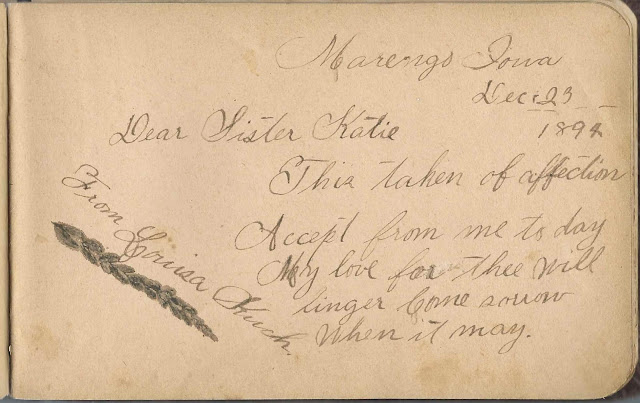 Marengo Iowa
Dec. 23
1894
Dear Sister Katie
This taken of affection
Accept from me to day
My love for thee will
linger Come sorrow
When it may.
From Louisa